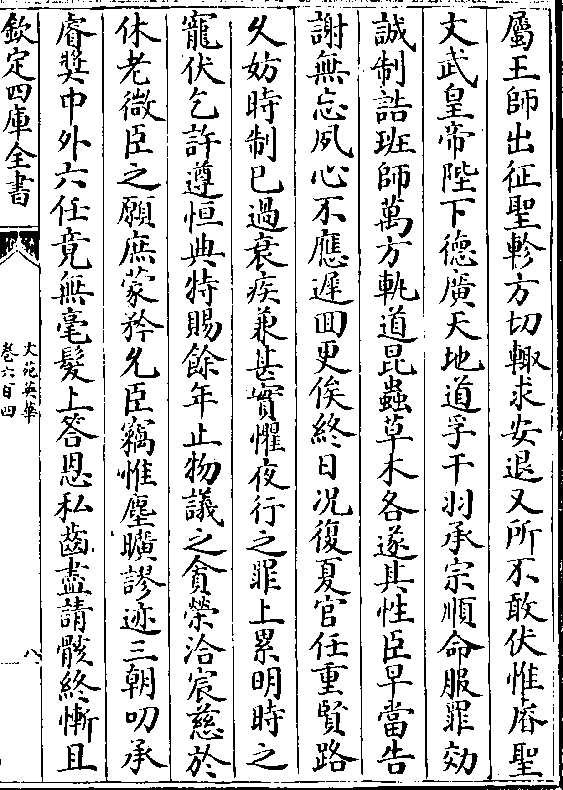 屬王師出征聖軫方切輙求安退又所不敢伏惟睿聖
文武皇帝陛下德廣天地道孚干羽承宗順命服罪効
誠制誥班師萬方軌道昆蟲草木各遂其性臣早當告
謝無忘夙心不應遲回更俟終日况復夏官任重賢路
乆妨時制已過衰疾兼甚實懼夜行之罪上累明時之
寵伏乞許遵恒典特賜餘年止物議之貪榮洽宸慈於
休老微臣之願庶蒙矜允臣竊惟塵曠謬迹三朝叨承
睿奬中外六任竟無毫髮上答恩私齒盡請骸終慚且
欽定四庫全書
文苑英華
卷六百四
八